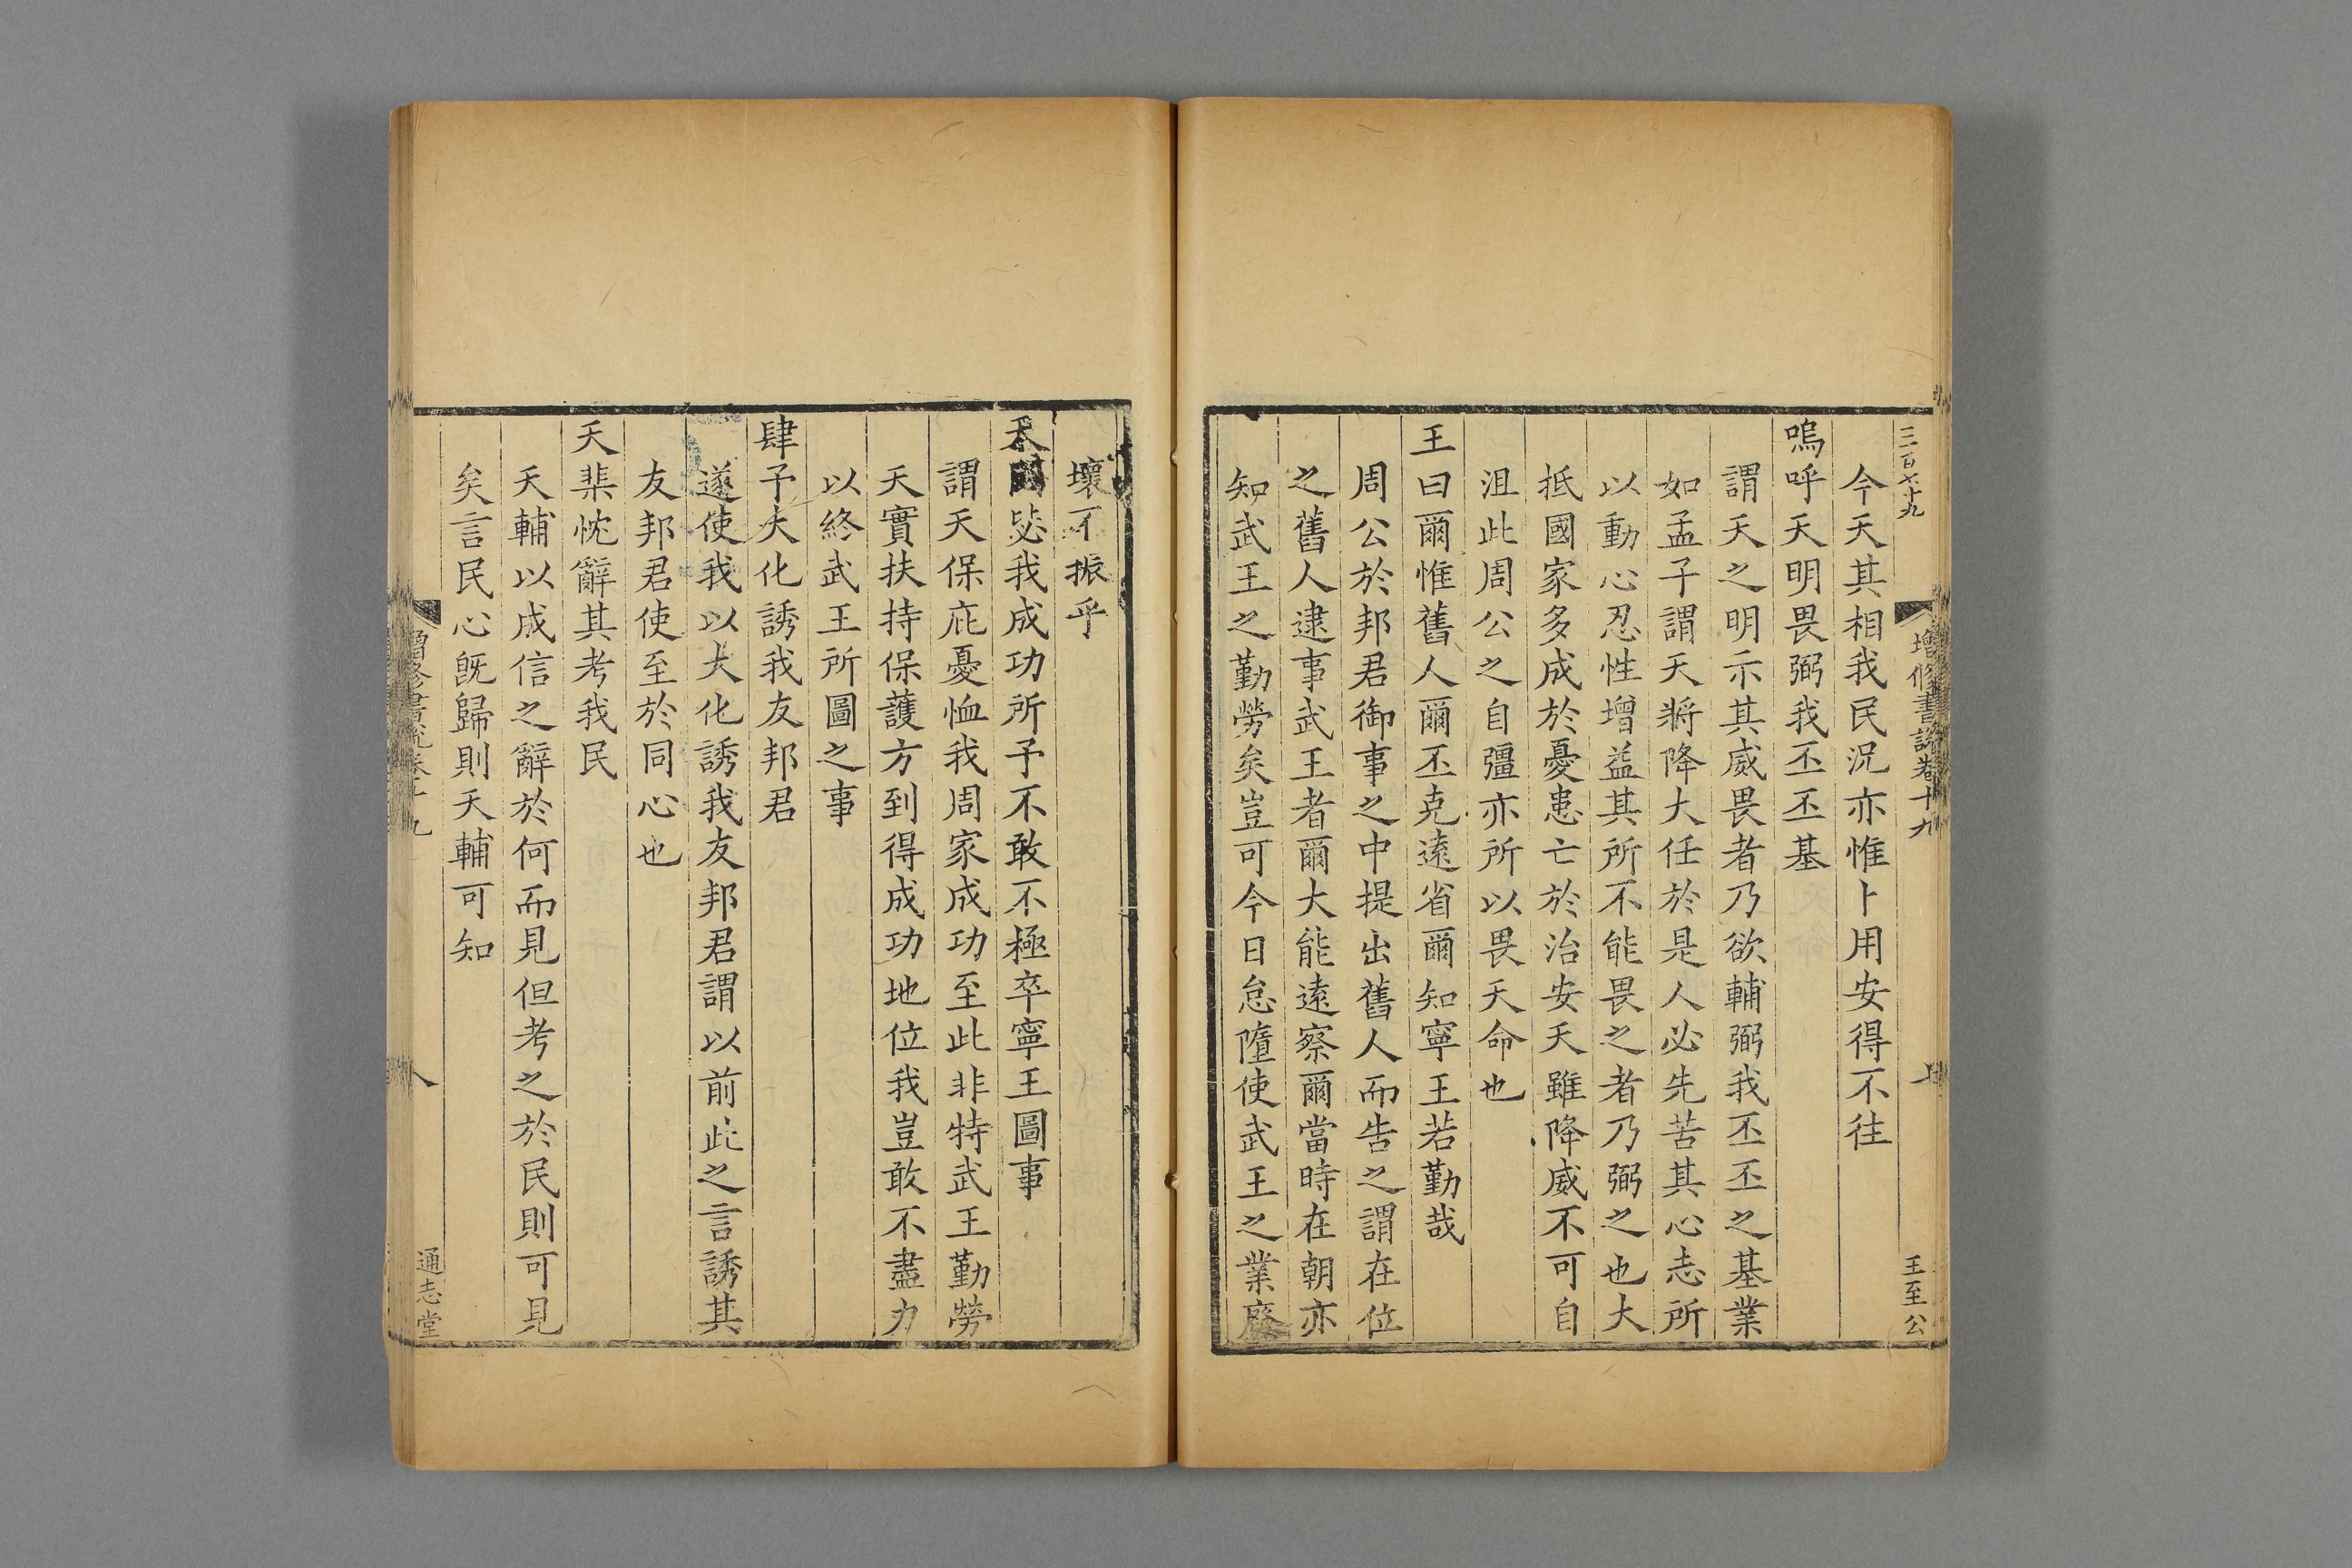 三百七十九
增修書說卷十九
王至公
今天其相我民況亦惟卜用安得不往
嗚呼天明畏弼我丕丕基
謂天之明明示其威畏者乃欲輔弼我丕丕之基業
如孟子謂天將降大任於是人必先苦其心志所
以動心忍性增益其所不能畏之者乃弼之也大
抵國家多成於憂患亡於治安天雖降威不可自
沮此周公之自彊亦所以畏天命也
王曰爾惟舊人爾丕克遠省爾知寧王若勤哉
周公於邦君御事之中提出舊人而告之謂在位
之舊人逮事武王者爾大能遠察爾當時在朝亦
知武王之勤勞矣豈可今日怠墮使武王之業廢
壞不振乎
天閟毖我成功所予不敢不極卒寧王圖事
謂天保庇憂恤我周家成功至此非特武王勤勞
天實扶持保護方到得成功地位我豈敢不盡力
以終武王所圖之事
肆予大化誘我友邦君
遂使我以大化誘我友邦君謂以前此之言誘其
友邦君使至於同心也
天棐忱辭其考我民
天輔以成信之辭於何而見但考之於民則可見
矣言民心旣歸則天輔可知
增修書說卷十九
八
通志堂